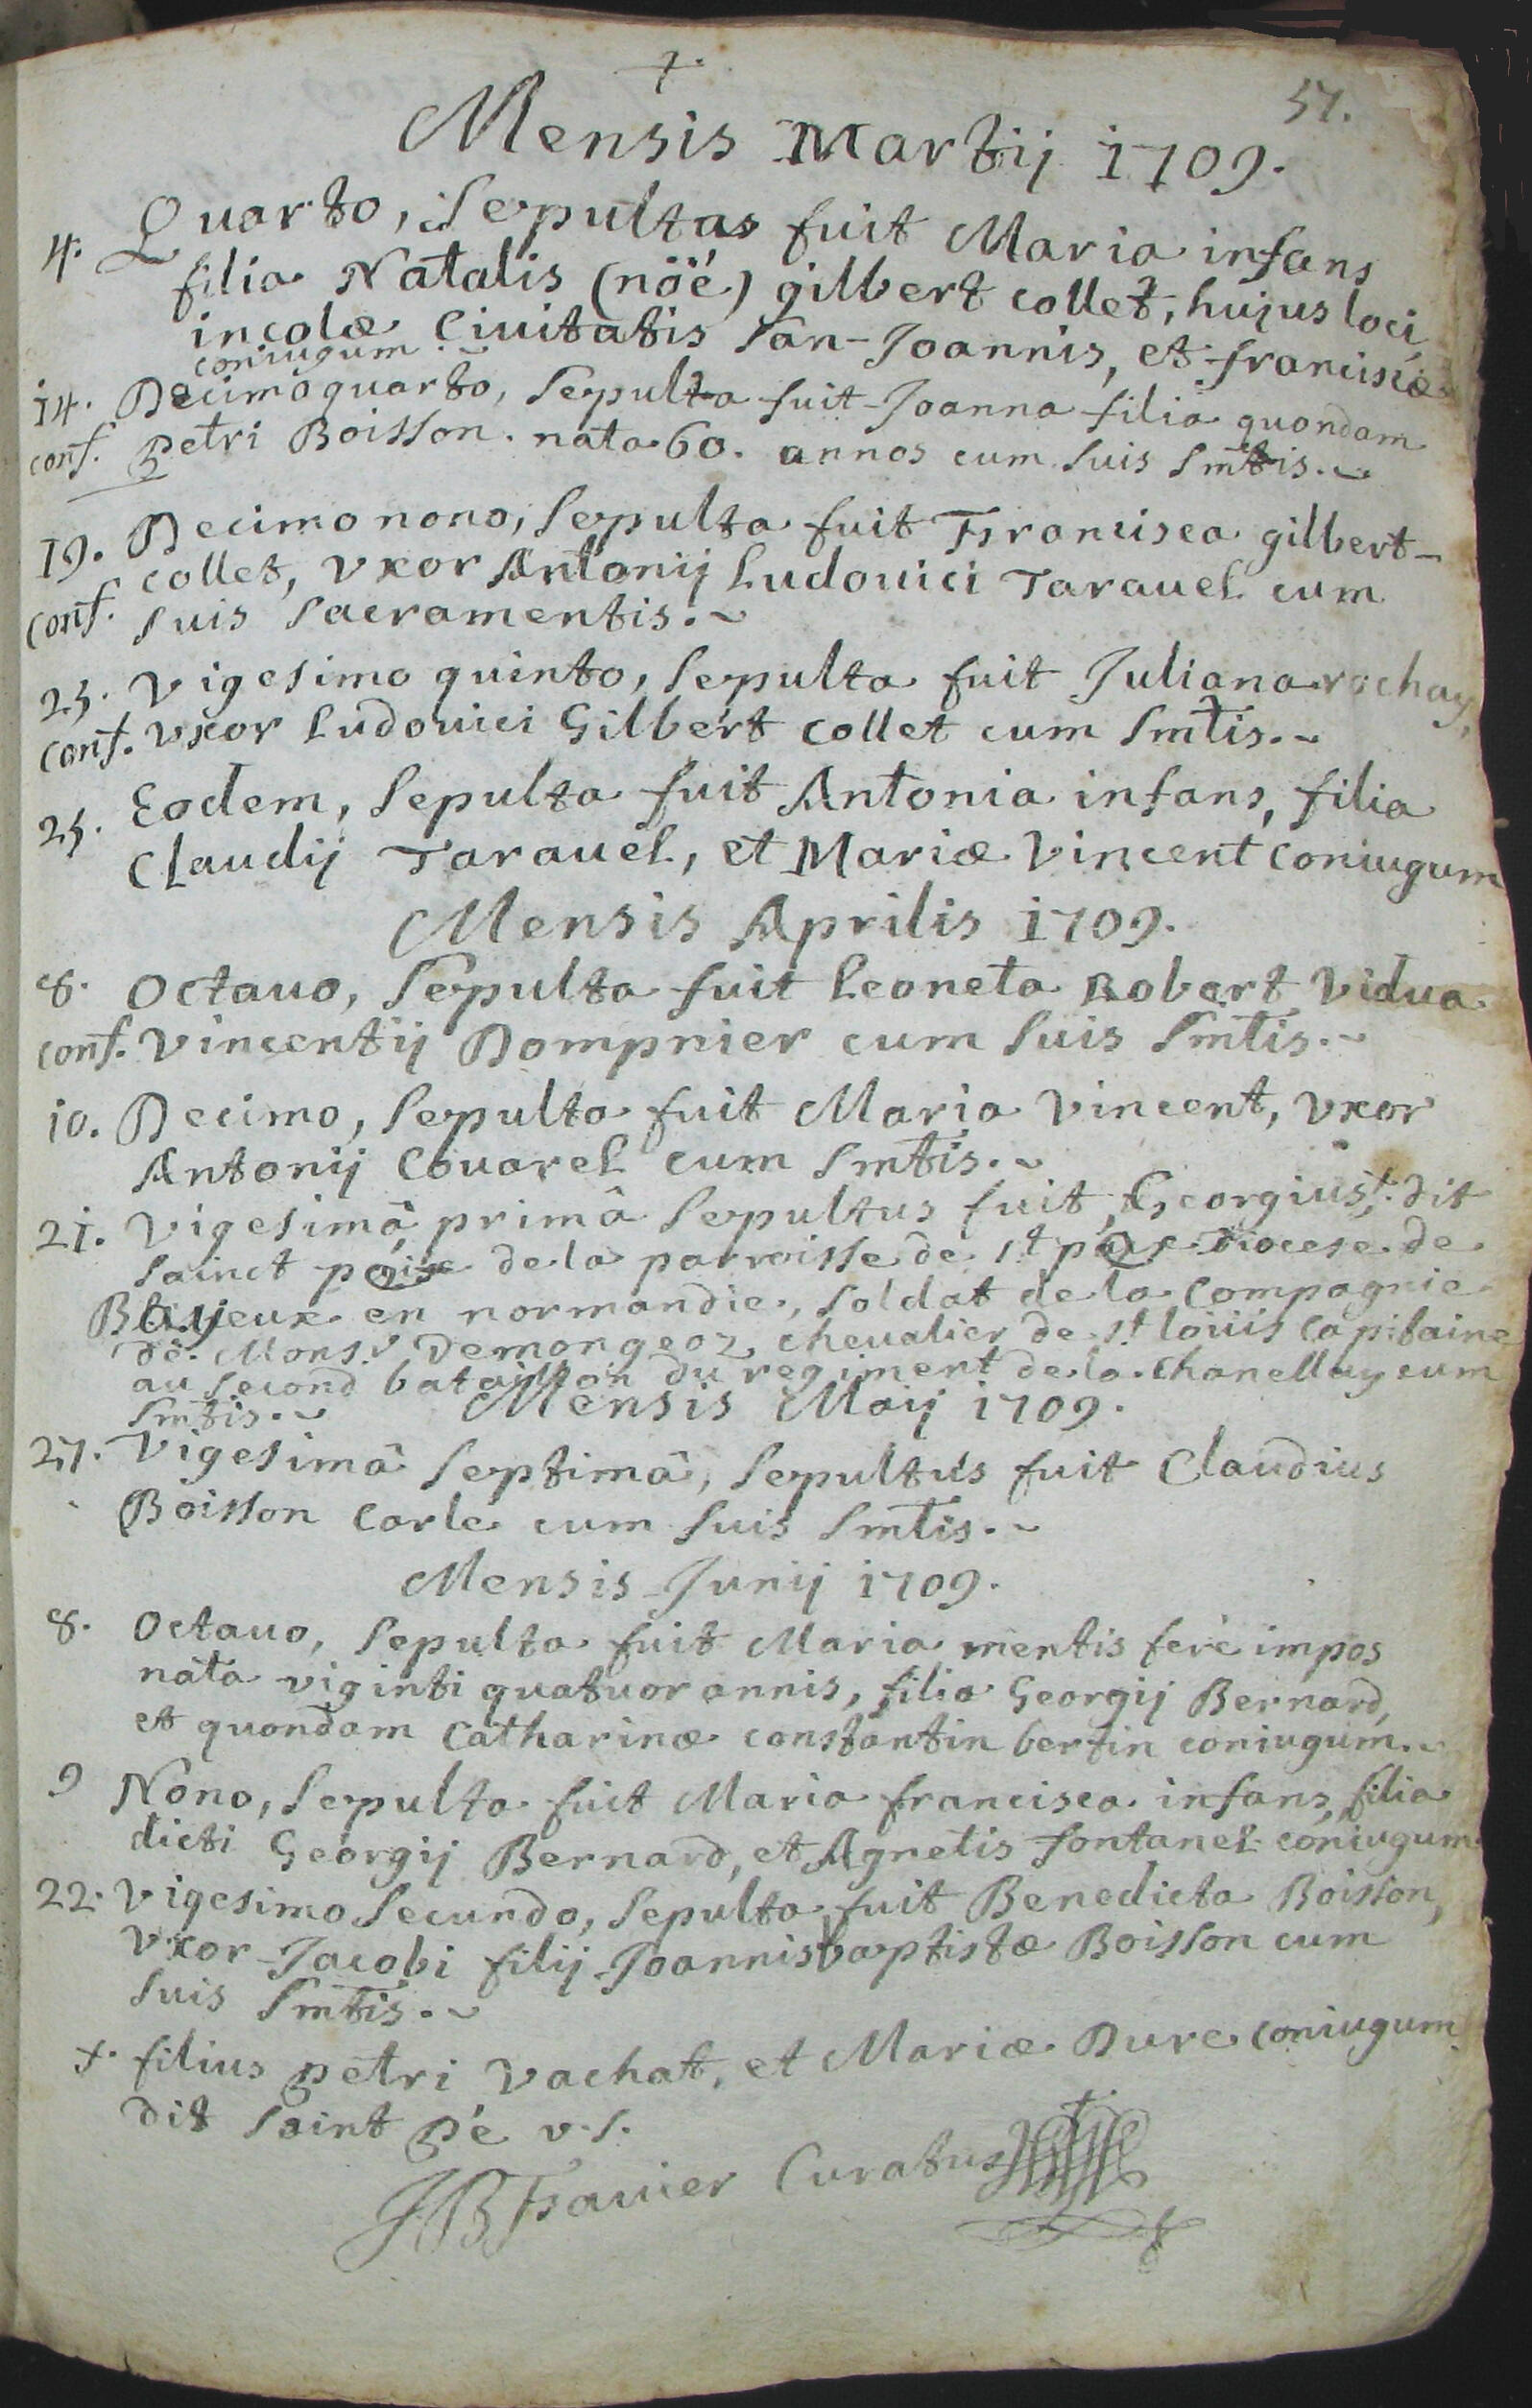 +.
57.
Mensis Martij 1709.
4. Quarto, Sepultas fuit Maria infans
filia Natalis (nöé) gilbert collet, hujus loci,
incolæ Ciuitatis San-Joannis, et franciscæ
coniugum.~
14. Decimoquarto, Sepulta fuit Joanna filia quondam
conf. petri Boisson. nata 60. annos cum Suis Smtis.~
19. Decimo nono, Sepulta fuit Francisca gilbert-
conf. collet, vxor Antonij Ludouici Tarauel cum
Suis Sacramentis.~
25. Vigesimo quinto, Sepulta fuit Juliana rochay,
conf. vxor Ludouici Gilbert collet cum Smtis.~
25. Eodem, Sepulta fuit Antonia infans, filia
Claudij Tarauel, et Mariæ Vincent coniugum
Mensis Aprilis 1709.
8. Octauo, Sepulta fuit Leoneta Robert vidua
conf. Vincentij Dompnier cum Suis Smtis.~
10. Decimo, Sepulta fuit Maria Vincent, vxor
Antonij Couarel cum Smtis.~
21. Vigesimâ primâ Sepultus fuit, Georgius +. dit
Sainct de la parroisse de St diocese de
Bayeux en normandie, Soldat de la Compagnie
de Monsr. Demongeoz chevalier de St loüis Capitaine
au Second bataillon du regiment de la Chanellay cum
Smtis.~
Mensis Maij 1709.
27. Vigesimâ Septimâ, Sepultus fuit Claudius
Boisson Carle cum Suis Smtis.~
Mensis Junij 1709.
8. Octauo, Sepulta fuit Maria mentis feré impos
nata viginti quatuor annis, filia Georgij Bernard,
et quondam Catharinæ constantin bertin coniugum.~
9 Nono, Sepulta fuit Maria francisca infans, filia
dicti Georgij Bernard, et Agnetis fontanel coniugum.
22. Vigesimo Secundo, Sepulta fuit Benedicta Boisson,
vxor Jacobi filij Joannisbaptistæ Boisson cum
Suis Smtis.~
+. filius petri Vachat, et Mariæ Dure coniugum
dit Saint Pé v.s.
JB Frauier Curatus